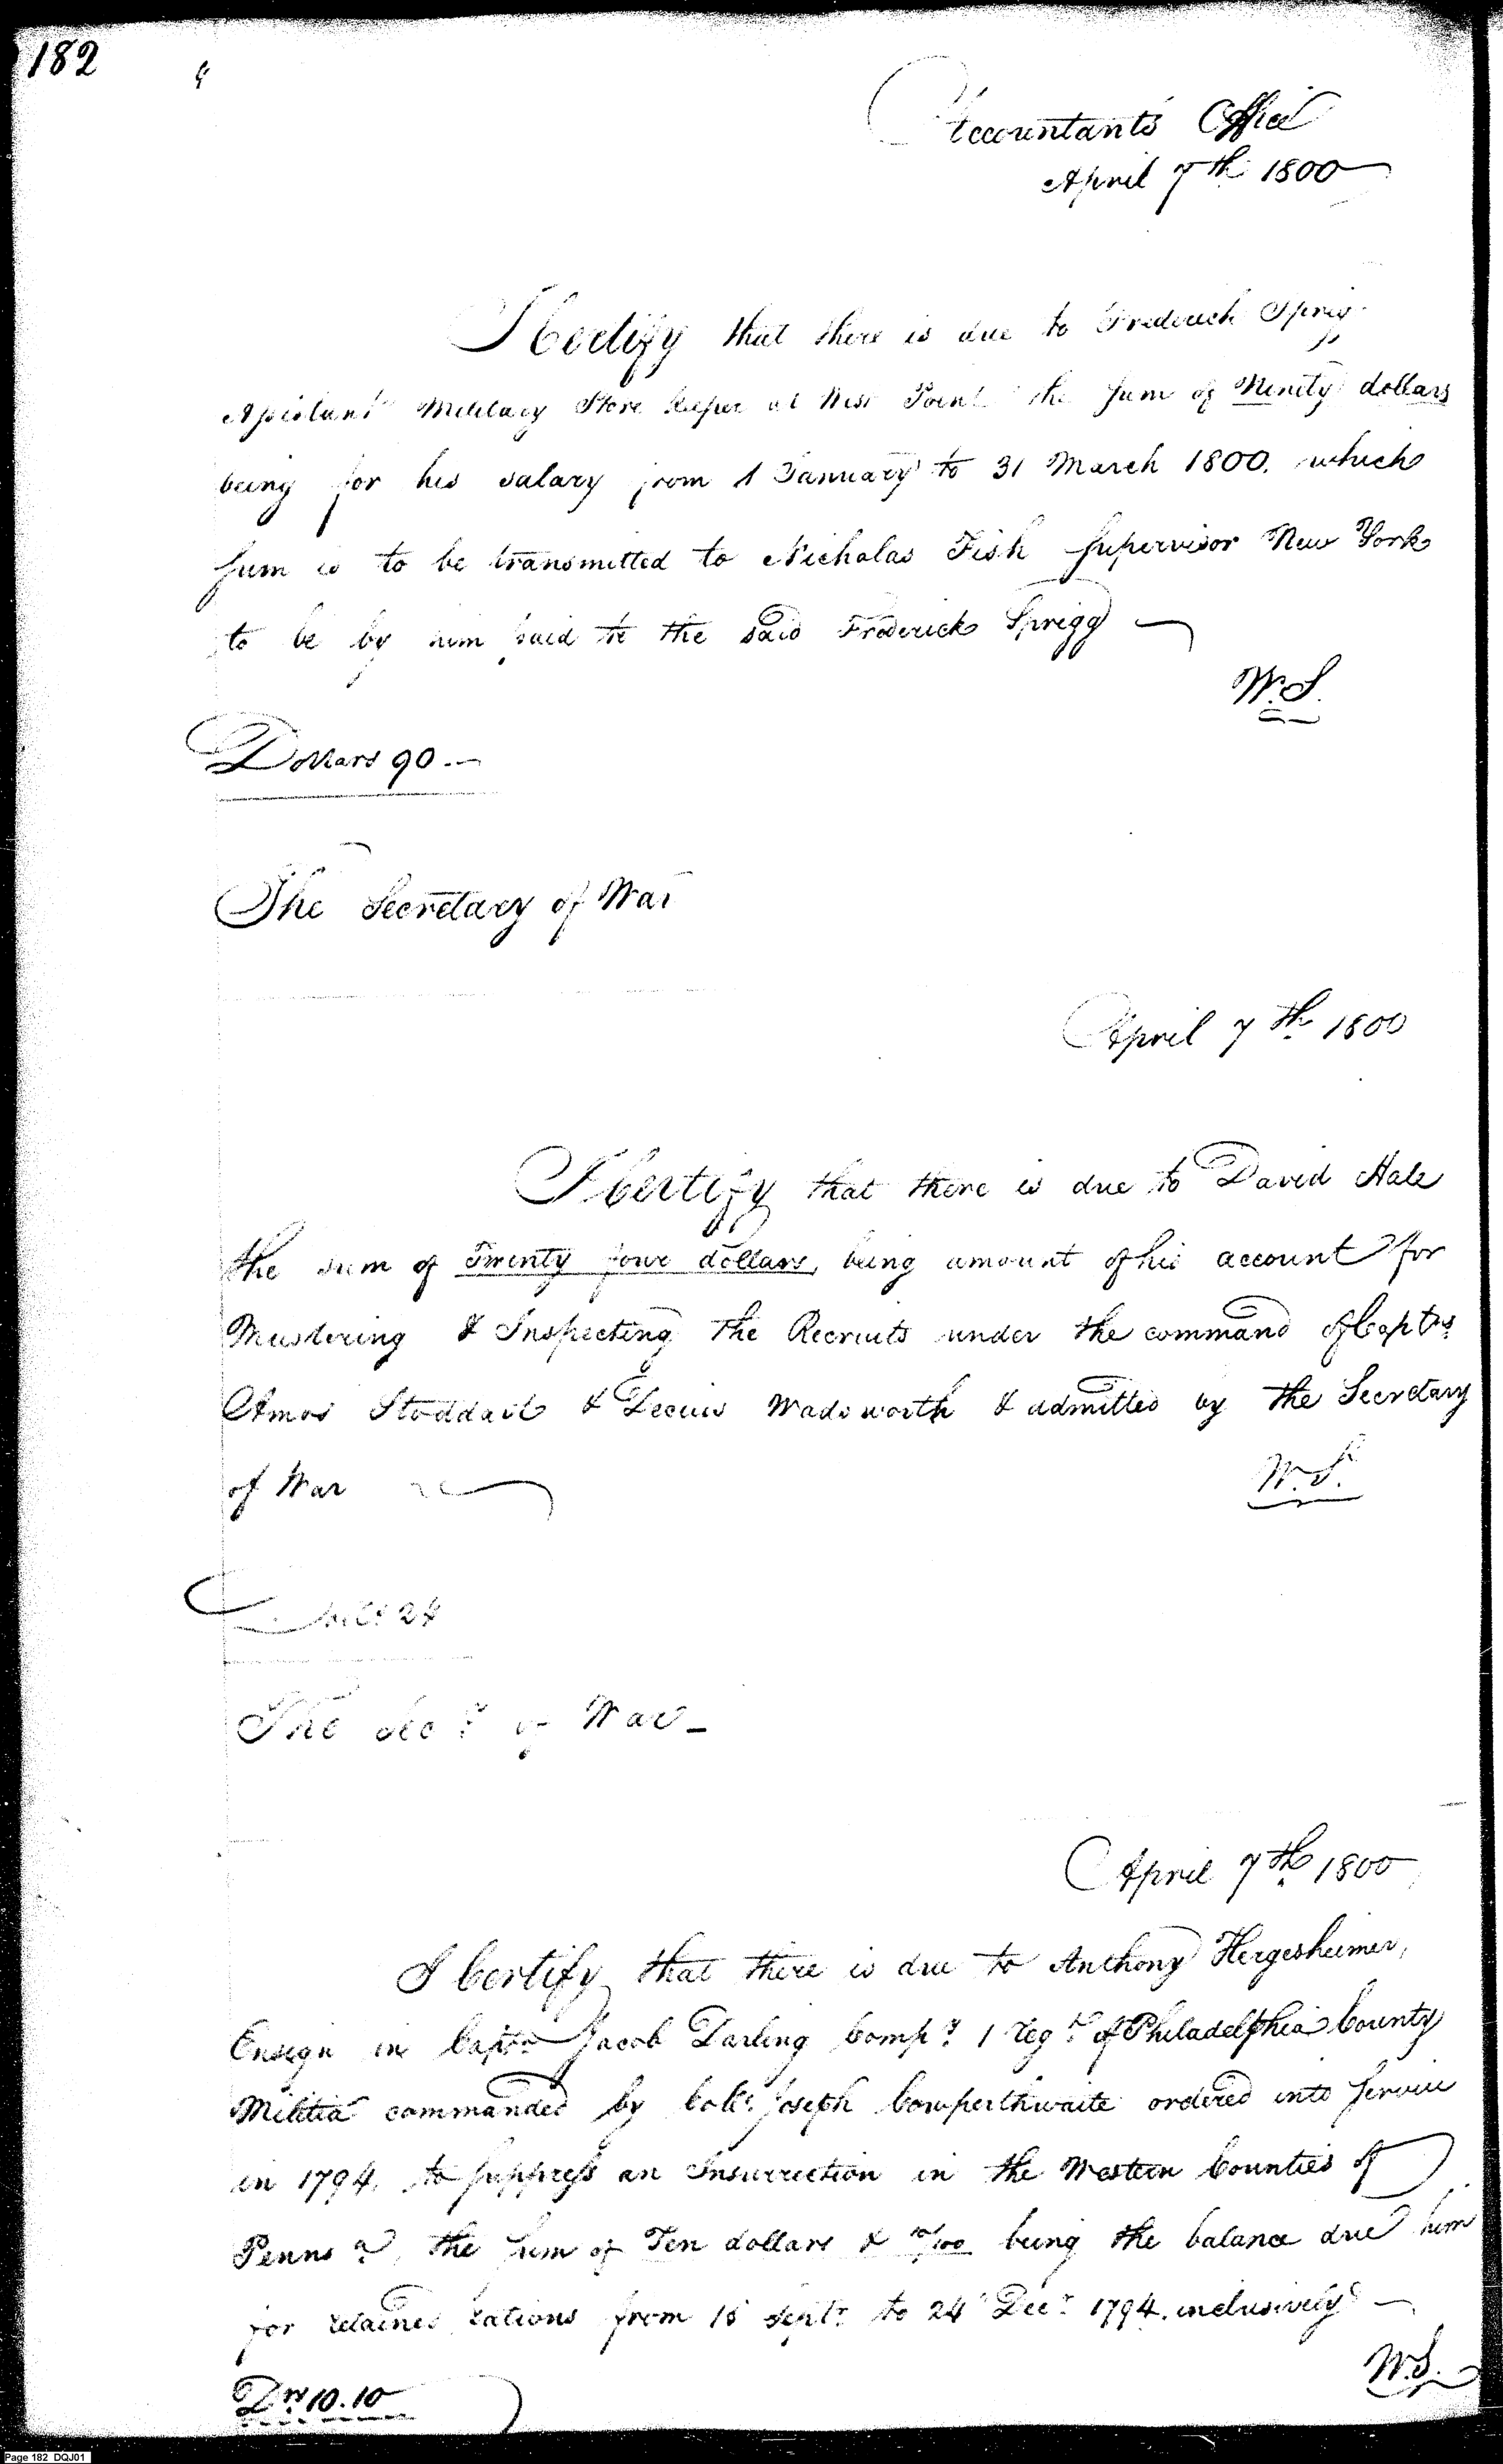 182
Accountants Office
April 7th 1800
I Certify that there is due to Frederick Sprigg
Assistant Military Store keeper at West Point the sum of Ninety dollars
being for his salary from 1 January to 31 March 1800. which
sum is to be transmitted to Nicholas Fish Supervisor New York
to be by him paid to the said Frederick Sprigg
W.S.
Dollars 90.—
The Secretary of War
April 7th 1800
I Certify that there is due to David Hale
the sum of Twenty four dollars, being amount of his account for
Mustering & Inspecting the Recruits under the command of Captns
Amos Stoddard & Decius Wadsworth & admitted by the Secretary
of War
W.S.
Dolls 24
The Secy of War—
April 7th 1800
I Certify that there is due to Anthony Hergesheimer,
Ensign in Captn Jacob Darling Compy 1 regt of Philadelphia County
Militia commanded by Coll. Joseph Cowperthwaite ordered into service
in 1794, to suppress an Insurrection in the Western Counties of
Pennsa, the sum of Ten dollars & 10/100 being the balance due him
for retained rations from 15 Septr to 24 Decr 1794. inclusively
W.S.
Drs 10.10
Page 182 DQJ01